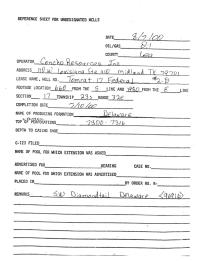 REFERENCE SHEET FOR UNDESIGNATED WELLS
DATE 8/7/00
OIL/GAS Oil
COUNTY Lea
OPERATOR Concho Resources Inc
ADDRESS 110 W Louisiana Ste 410 Midland TX 79701
LEASE NAME, WELL NO. Tomcat 17 Federal #2
FOOTAGE LOCATION 660 FROM THE S LINE AND 1980 FROM THE E LINE
SECTION 17 TOWNSHIP 23S RANGE 32E
COMPLETION DATE 7/10/00
NAME OF PRODUCING FORMATION Delaware
TOP OF PERFORATIONS 7300-7316
DEPTH TO CASING SHOE
C-123 FILED
NAME OF POOL FOR WHICH EXTENSION WAS ASKED
ADVERTISED FOR HEARING CASE NO.
NAME OF POOL FOR WHICH EXTENSION WAS ADVERTISED
PLACED IN BY ORDER NO. R-
REMARKS SW Diamondtail Delaware